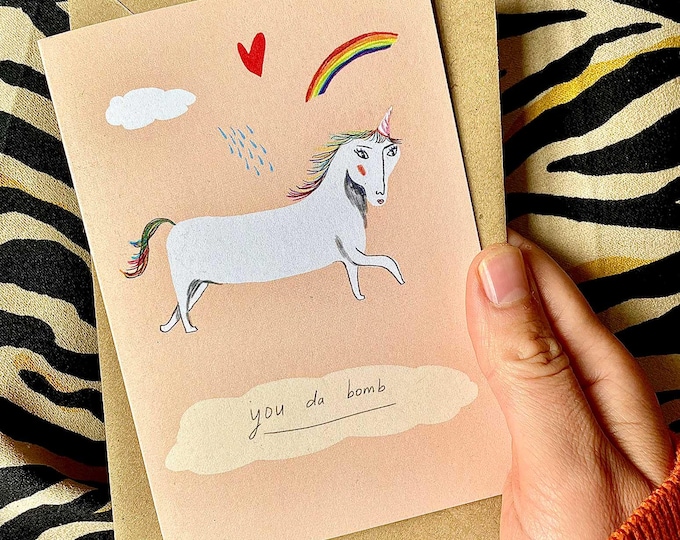 you da bomb